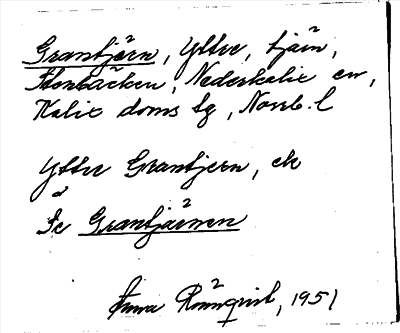 Grantjärn, Yttre, tjärn,
Storbäcken, Nederkalix sn,
Kalix doms lg, Norrb. l
Yttre Grantjern, ek
Se Grantjärnen
Anna Rönnqvist, 1951